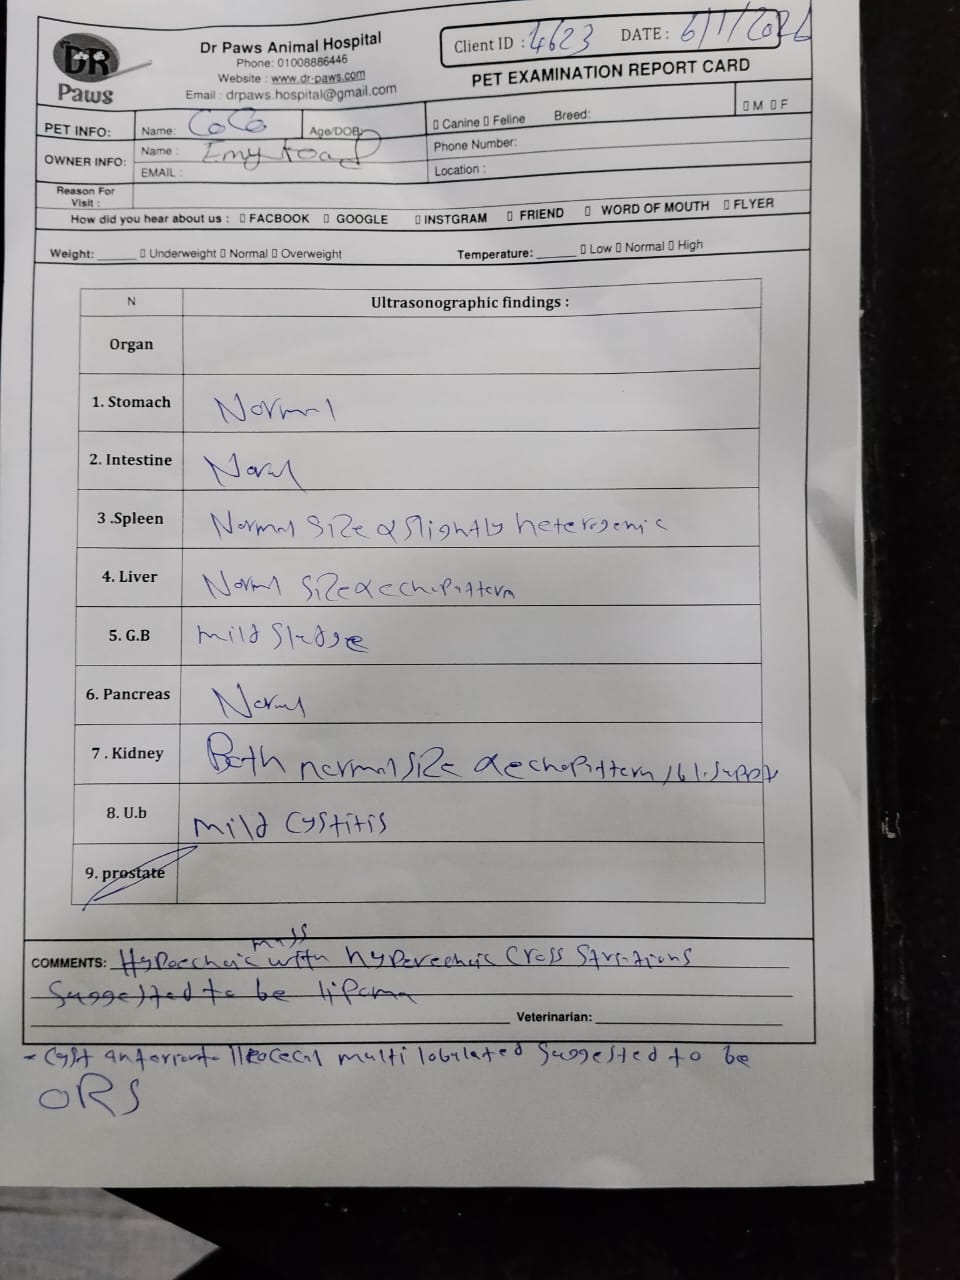 DR
Paws
Dr Paws Animal Hospital
Phone: 01008886446
Website : www.dr-paws.com
Email : drpaws.hospital@gmail.com
Client ID : 4623 DATE : 6/1/2026
PET EXAMINATION REPORT CARD
PET INFO: Name: CoCo Age/DOB: ▯ Canine ▯ Feline Breed: ▯ M ▯ F
OWNER INFO: Name : Emy Phone Number:
EMAIL : Location :
Reason For
Visit :
How did you hear about us : ▯ FACBOOK ▯ GOOGLE ▯ INSTGRAM ▯ FRIEND ▯ WORD OF MOUTH ▯ FLYER
Weight: ______ ▯ Underweight ▯ Normal ▯ Overweight Temperature: ______ ▯ Low ▯ Normal ▯ High
N Ultrasonographic findings :
Organ
1. Stomach Normal
2. Intestine Normal
3 .Spleen Normal size & slightly heterogenic
4. Liver Normal size & echopattern
5. G.B mild sludge
6. Pancreas Normal
7 . Kidney Both normal size & echopattern
8. U.b mild cystitis
9. prostate
COMMENTS: Hypoechoic mass with hyperechoic cross striations
suggested to be lipoma
Veterinarian:
- Cyst multi lobulated suggested to be
ORS